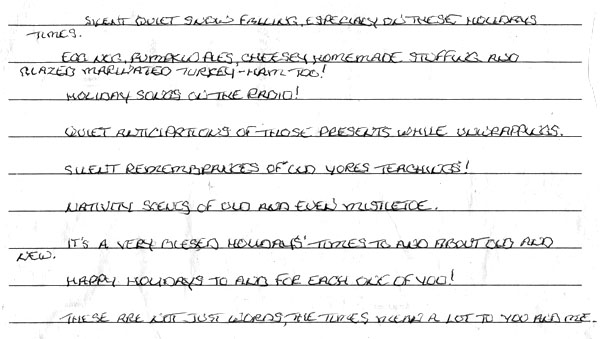 SILENT QUIET SNOW FALLING, ESPECIALY ON THESE HOLIDAYS
TIMES.
EGG NOG, PUMPKIN PIES, CHEESEY HOMEMADE STUFFING AND
GLAZED MARINATED TURKEY-HAM TOO!
HOLIDAY SONGS ON THE RADIO!
QUIET ANTICIPATIONS OF THOSE PRESENTS WHILE UNWRAPPINGS.
SILENT REMEMBRANCES OF OLD YORES TEACHINGS!
NATIVITY SCENES OF OLD AND EVEN MISTLETOE.
IT'S A VERY BLESED HOLIDAYS' TIMES TO AND ABOUT OLD AND
NEW.
HAPPY HOLIDAYS TO AND FOR EACH ONE OF YOU!
THESE ARE NOT JUST WORDS, THE TIMES MEAN A LOT TO YOU AND ME.